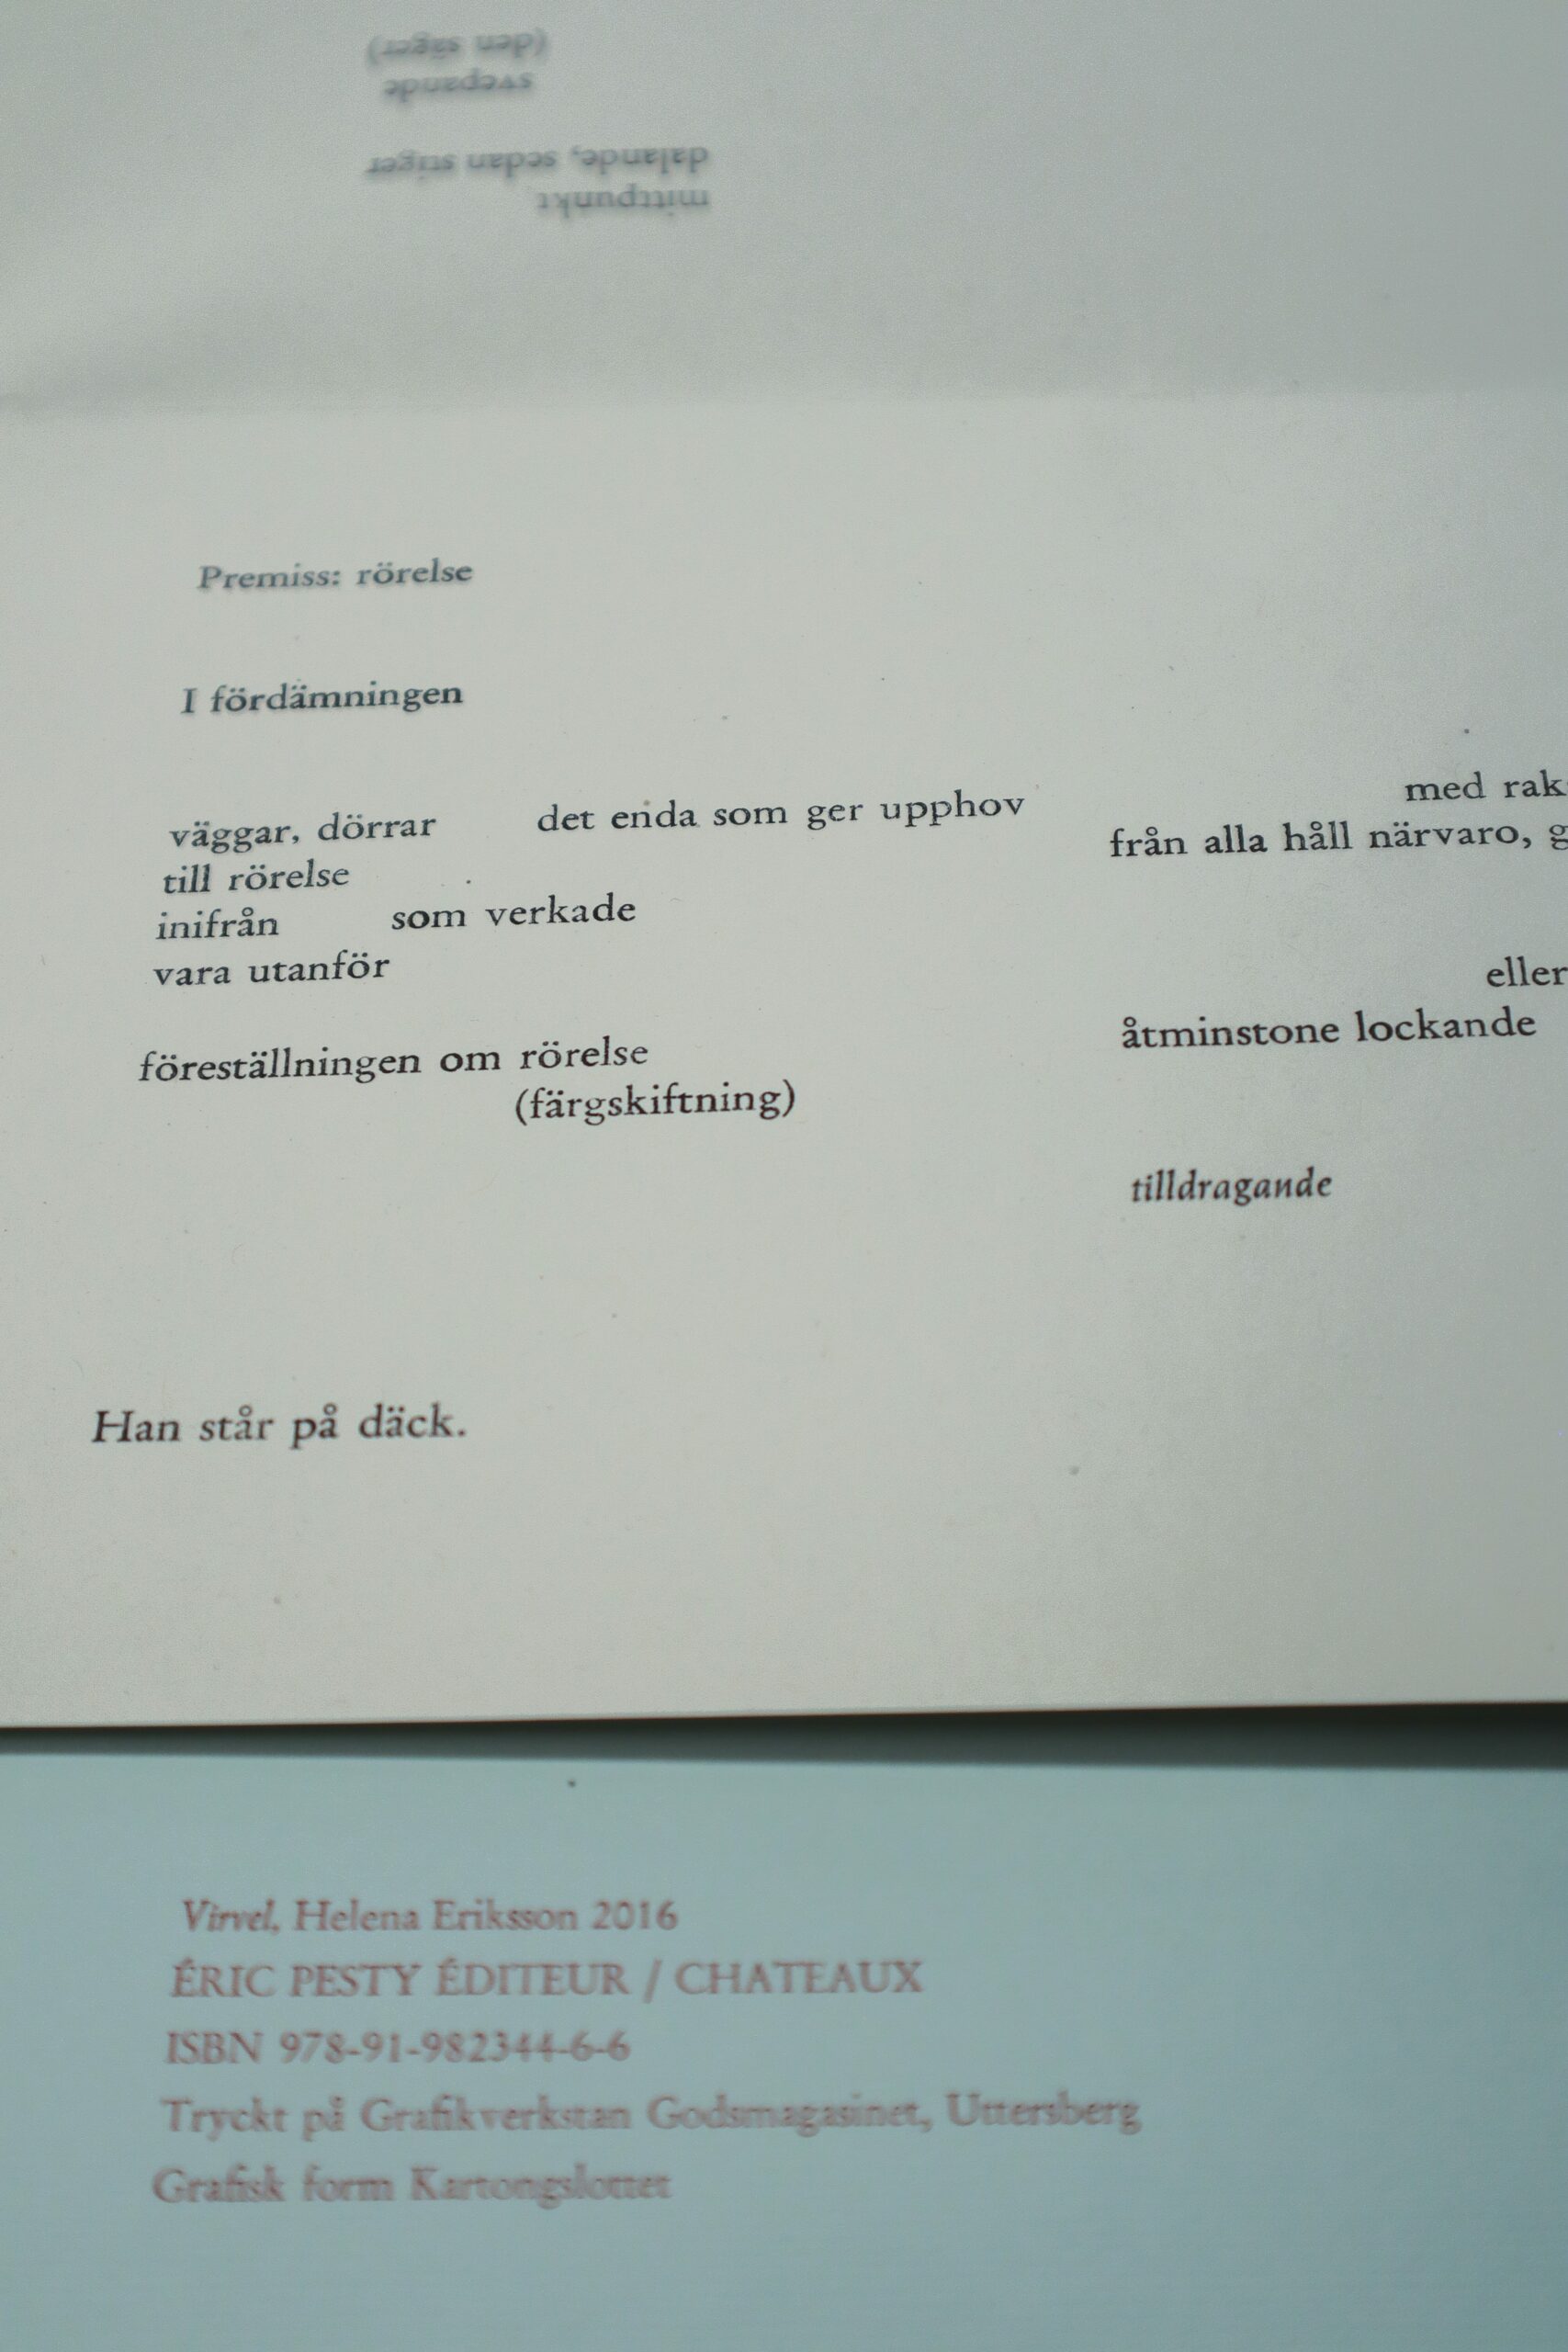 mittpunkt
dalande, sedan stiger
svepande
(den säger)
Premiss: rörelse
I fördämningen
väggar, dörrar det enda som ger upphov
till rörelse
inifrån som verkade
vara utanför
föreställningen om rörelse
(färgskiftning)
Han står på däck.
med rak
från alla håll närvaro, g
eller
åtminstone lockande
tilldragande
Virvel, Helena Eriksson 2016
ÉRIC PESTY ÉDITEUR / CHATEAUX
ISBN 978-91-982344-6-6
Tryckt på Grafikverkstan Godsmagasinet, Uttersberg
Grafisk form Kartongslottet